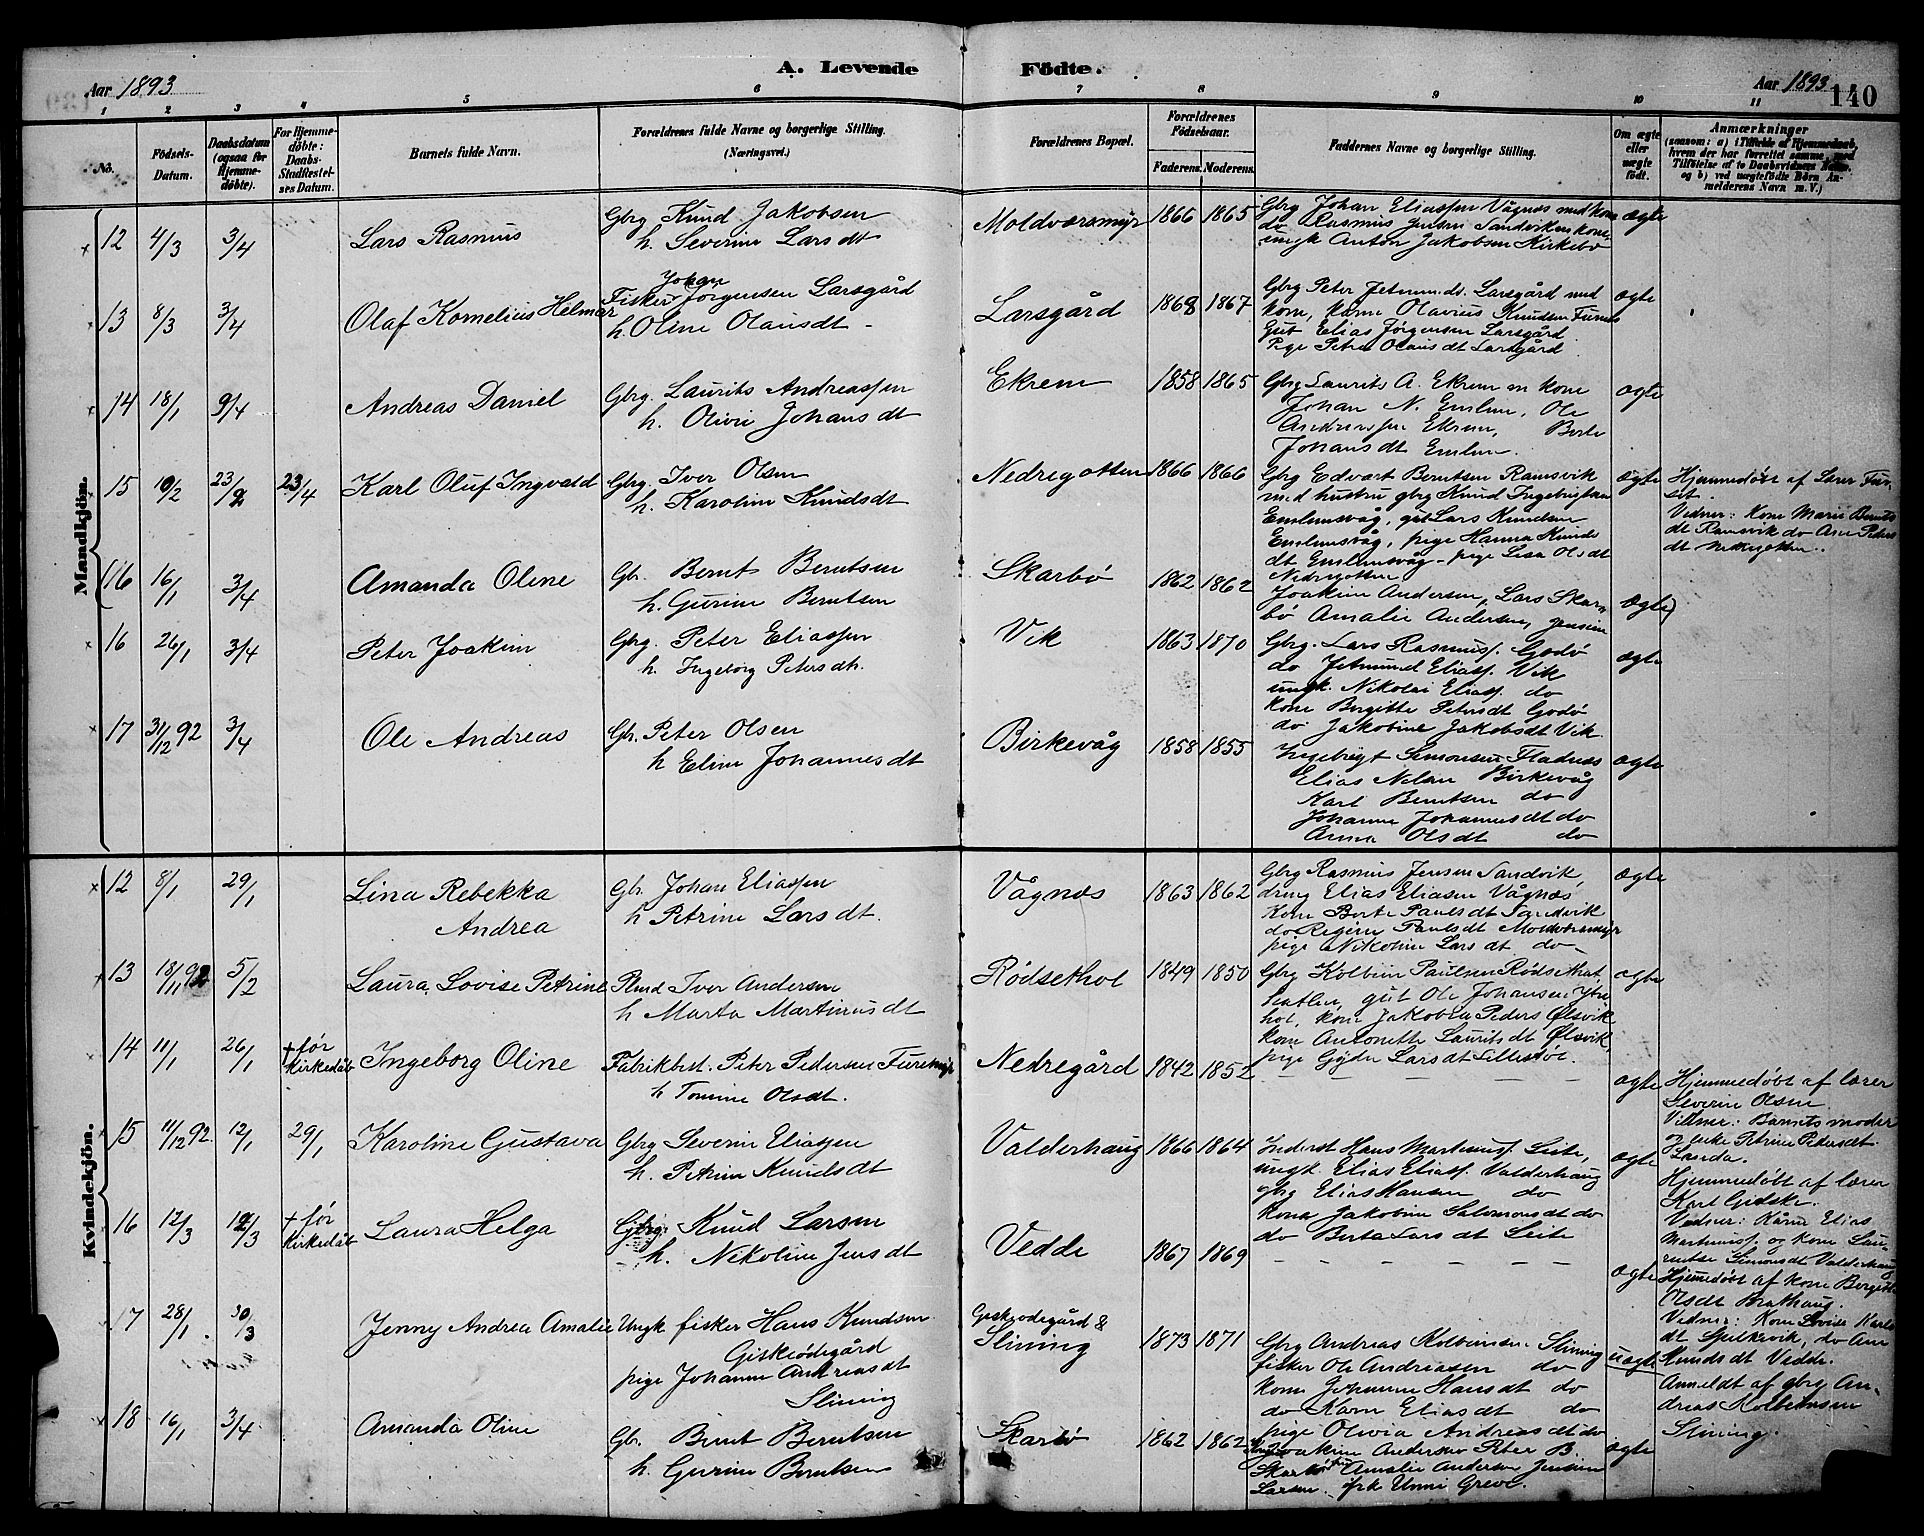 A. Levende Födte.
Aar 1893
Aar 1893 140
1 2 3 4 5 6 7 8 9 10 11
No.
Födsels-Datum.
Daabsdatum (ogsaa for Hjemme-döbte).
For Hjemme-döbte: Daabs-Stadfestel-ses Datum.
Barnets fulde Navn.
Forældrenes fulde Navne og borgerlige Stilling. (Næringsvei.)
Forældrenes Bopæl.
Forældrenes Födselsaar.
Faderens. Moderens.
Faddernes Navne og borgerlige Stilling.
Om ægte eller uægte födt.
Anmærkninger
Mandkjön.
12 4/3 3/4 Lars Rasmus
Gbrg Knud Jakobsen
h. Severine Larsdt
Moldværsmyr 1866 1865
Gbrg Johan Eliassen Vågnæs med kone
do Rasmus Jensen Sandviken kone
ungk Anton Jakobsen Kirkebö
ægte
13 8/3 3/4 Olaf Kornelius Helmar
Johan
Fisker Jörgensen Larsgård
h. Oline Olausdt -
Larsgård 1868 1867
Gbrg Peter Jetmundt. Larsgård med
kone, kone Olavius Knudsen Furnes
Gut Elias Jörgensen Larsgård
Pige Petra Olausdt Larsgård
ægte
14 18/1 9/4 Andreas Daniel
Gbrg. Laurits Andreassen
h. Olivie Johansdt
Ekrem 1858 1865
Gbrg Laurits A. Ekrem m kone
Johan N. Emlem, Ole
Andreassen Ekrem, Berte
Johansdt Emlem
ægte
15 10/2 23/2 23/4 Karl Oluf Ingvald
Gbrg. Iver Olsen
h. Karoline Knudsdt
Nedregotten 1866 1866
Gbrg Edvart Berntsen Ramsvik
med hustru gbrg Knud Ingebrigtsen
Emlemsvåg, gut Lars Knudsen
Emlemsvåg, pige Hanna Knuds
dt Emlemsvåg - pige Lisa Olsdt
Nedregotten
ægte
Hjemmedöbt af Lærer Fur-
set.
Vidner: Kone Marie Bernts
dt Ramsvik do Ane Peters
dt Nedregotten.
(16 16/1 3/4 Amanda Oline
Gb. Bernt Berntsen
h. Gurine Berntsen
Skarbö 1862 1862
Joakim Andersen, Lars Skar
bö Amalie Andersen, Jensine
Ægte)
16 26/1 3/4 Peter Joakim
Gbrg. Peter Eliassen
h Ingeborg Petersdtr.
Vik 1863 1870
Gbrg. Lars Rasmuss. Godö
do Jetmund Eliass. Vik
ungk. Nikolai Eliass. do
Kone Bergitte Petersdt Godö
do Jakobine Jakobsdt Vik
ægte
17 31/12 92 3/4 Ole Andreas
Gb. Peter Olsen
h Eline Johannesdt
Birkevåg 1858 1855
Ingebrigt Simonsen Fladnæs
Elias Nilsen Birkevåg
Karl Berntsen do
Johanne Johannesdt do
Anna Olsdt do
ægte
Kvindekjön.
12 8/1 29/1 Lina Rebekka
Andrea
Gb. Johan Eliassen
h Petrine Larsdt.
Vågnæs 1863 1862
Gbrg Rasmus Jensen Sandvik
dreng Elias Eliasen Vågnæs
Kone Berte Paulsdt Sandvik
do Regine Paulsdt Moldværsmyr
pige Nikoline Larsdt do
ægte
13 18/11 92 5/2 Laura Lovise Petrine
Iver Andersen
h Marta Martinusdt
Rödsethol 1849 1850
Gbrg Kolbein Paulsen Rödset
gut Ole Johansen Ytre
hol, kone Jakobea Peders Ölsvik
kone Antonette Lauritsdt Ölsvik,
pige Gjyda Larsdt Lillestöl.
ægte
14 11/1 26/1 † för Kirkedåb Ingeborg Oline
Fabrikbest. Peter Pedersen Furemyr
h Tomine Olsdt.
Nedregård 1842 1852
— — — — — —
ægte
Hjemmedöbt af lærer
Severin Olsen
Vidner: Barnets moder
og enke Petrine Pedersdt.
Landa.
15 11/12 92. 12/1 29/1 Karoline Gustava
Gbrg Severin Eliassen
h. Petrine Knudsdt
Valderhaug 1866 1864
Inderst Hans Martinuss. Leite,
ungk. Elias Eliass. Valderhaug
gbrg Elias Hansen do
Kona Jakobine Salomonsdt do
do Berta Larsdt Leite
ægte
Hjemmedöbt af lærer
Karl Gjeske.
Vidner: Kårm. Elias
Martinuss. og kone Lau-
rentse Simonsdt Valderhaug
16 12/3 12/3 † för Kirkedåb Laura Helga
Gbrg. Knud Larsen
h. Nikoline Jensdt
Vedde 1867 1869
— — — — — —
ægte
Hjemmedöbt af kone Bergitte
Olsdt Brathaug.
Vidner: Kone Lovise Karls
dt Spilkevik, do Ane
Knudsdt Vedde.
17 28/1 30/3 Jenny Andrea Amalie
Ungk fisker Hans Knudsen
Giskeödegård
pige Johanne Andreasdt
Slining
Giskeödegård &
Slining 1873 1871
Gbrg Andreas Kolbeinsen Slining
fisker Ole Andreasen do
kone Johanne Hansdt do
do Karen Eliasdt do
pige Olivia Andreasdt do
uægte
Anmeldt af gbrg An-
dreas Kolbeinsen
Slining.
18 16/1 3/4. Amanda Oline
Gb. Bernt Berntsen
h. Gurine Berntsen
Skarbö 1862 1862
Joakim Andersen Peter B.
Skarbö Amalie Andersen Jensine
Larsen. frk Unni Greve.
ægte